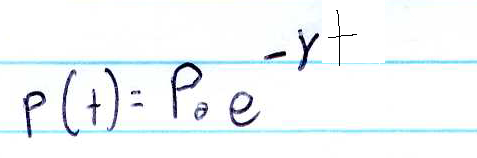 P(t) = P₀ e^{-γt}